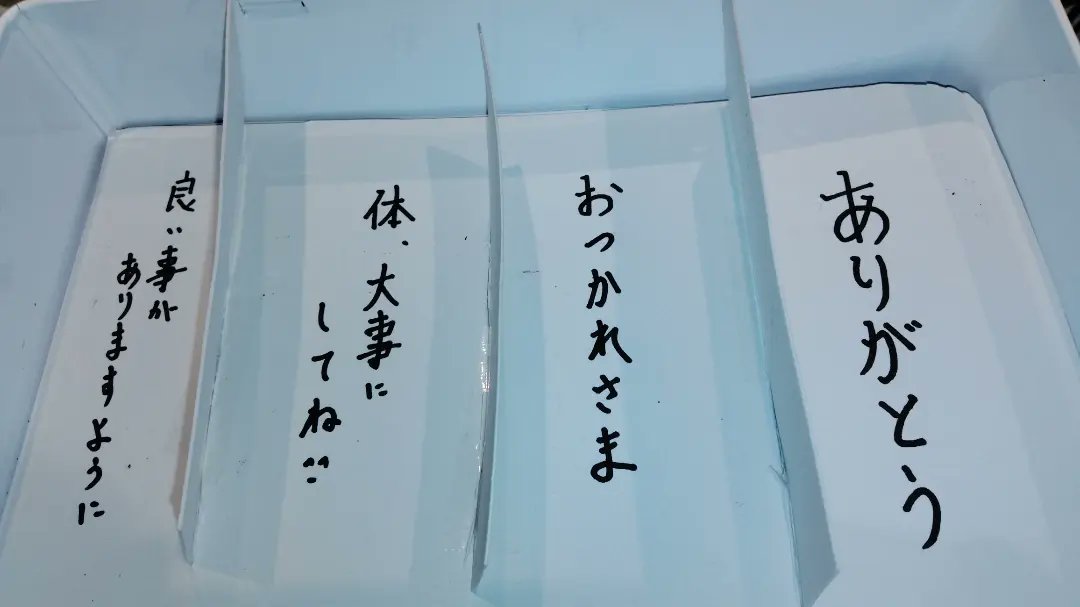 ありがとう
おっかれさま
体、大事に
してね
良い事が
ありますように